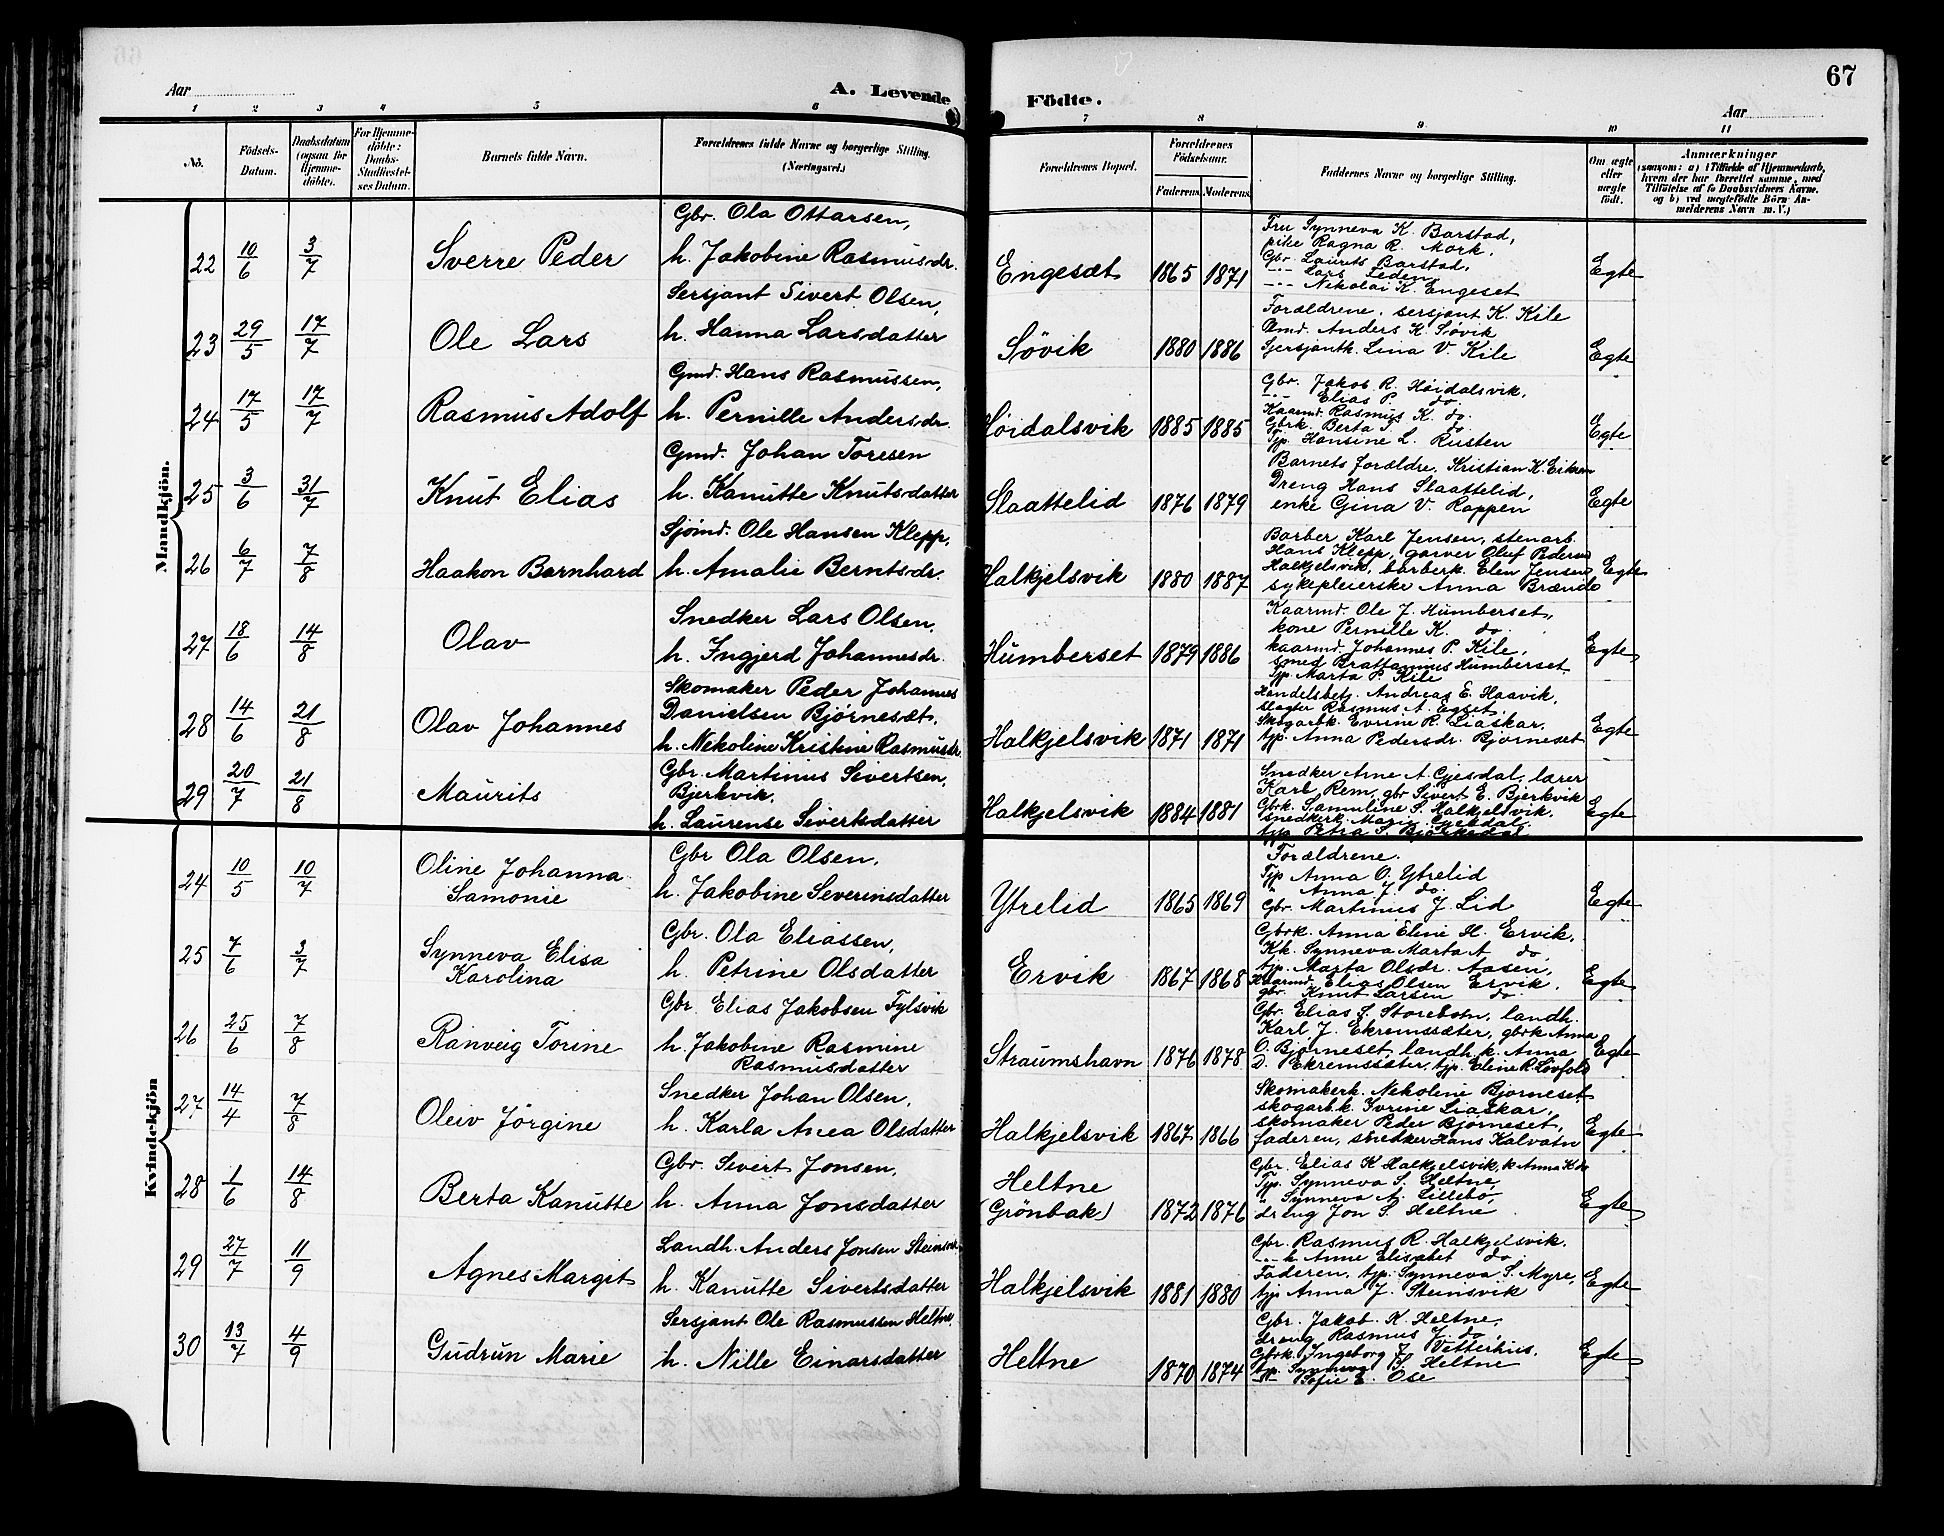 67
Aar
A. Levende Födte.
Aar
1 2 3 4 5 6 7 8 9 10 11
No.
Födsels-Datum.
Daabsdatum (ogsaa for Hjemme-döbte).
For Hjemme-döbte: Daabs-Stadfæstel-ses Datum.
Barnets fulde Navn.
Forældrenes fulde Navne og borgerlige Stilling. (Næringsvei.)
Forældrenes Bopæl.
Forældrenes Födselsaar.
Faderens. Moderens.
Faddernes Navne og borgerlige Stilling.
Om ægte eller uægte födt.
Anmærkninger
(saasom: a) i Tilfælde af Hjemmedaab,
hvem der har forrettet samme, med
Tilföielse af to Daabsvidners Navne.
og b) ved uægtefödte Börn An-
melderens Navn m. V.)
Mandkjön.
22 10/6 3/7 Sverre Peder
Gbr. Ola Ottarsen,
h. Jakobine Rasmusdr.
Engesæt 1865 1871
Fru Synneva K. Barstad,
pike Ragna R. Mork,
Gbr. Laurits Barstad,
-"- Lars Leden
-"- Nikolai K. Engeset
Egte
23 29/5 17/7 Ole Lars
Sersjant Sivert Olsen,
h. Hanna Larsdatter
Søvik 1880 1886
Forældrene, sersjant K. Kile
Anders K. Søvik
Sersjantk. Lina V. Kile
Egte
24 17/5 17/7 Rasmus Adolf
Gmd. Hans Rasmussen,
h. Pernille Andersdr.
Høidalsvik 1885 1885
Gbr. Jakob R. Høidalsvik,
-"- Elias P. do.
Kaarmd. Rasmus K. do.
Gbrk. Berta do
Tjp. Hansine L. Rusten
Egte
25 3/6 31/7 Knut Elias
Gmd. Johan Toresen
h. Kanutte Knutsdatter
Slaattelid 1876 1879
Barnets forældre, Kristian K. Eiksen
Dreng Hans Slaattelid,
enke Gina V. Rappen
Egte
26 6/7 7/8 Haakon Bernhard
Sjömd. Ole Hansen Klepp,
h. Amalie Berntsdr.
Halkjelsvik 1880 1887
Barber Karl Jensen, stenarb.
Hans Klepp, garver Oluf Pedersen
Halkjelsvik, barberk. Elen Jensen
sykepleierske Anna Brænde
Egte
27 18/6 14/8 Olav
Snedker Lars Olsen,
h. Ingjerd Johannesdr.
Humberset 1879 1886
Kaarmd. Ole J. Humberset,
kone Pernille K. do.
kaarmd. Johannes P. Kile,
smed Humberset
tjp. Marta P. Kile
Egte
28 14/6 21/8 Olav Johannes
Skomaker Peder Johannes
Danielsen Bjørnesæt,
h. Nekoline Kristine Rasmusdr.
Halkjelsvik 1871 1871
Handelsbetj. Andreas E. Haavik,
slagter Rasmus A. Egset,
Skogarbk. Evrine R. Liaskar,
tjp. Anna Pedersdr. Bjørneset
Egte
29 20/7 21/8 Maurits
Gbr. Martinus Sivertsen,
Bjerkvik,
h. Laurense Sivertsdatter
Halkjelsvik 1884 1881
Snedker Arne A. Gjesdal, lærer
Karl Rem, gbr Sivert E. Bjerkvik
Gbrk. Samuline S. Halkjelsvik,
snedkerk. Marie Gjesdal,
tjp. Petra S.
Egte
Kvindekjön
24 10/5 10/7 Oline Johanna
Samonie
Gbr Ola Olsen,
h. Jakobine Severinsdatter
Ytrelid 1865 1869
Forældrene.
Tjp Anna O. Ytrelid
" Anna J. do.
Gbr. Martinus J. Lid
Egte
25 7/6 3/7 Synneva Elisa
Karolina
Gbr. Ola Eliassen,
h. Petrine Olsdatter
Ervik 1867 1868
Gbrk. Anna Eline H. Ervik,
Kk. Synneva Marta A do,
tjp. Marta Olsdr. Aasen,
Kaarmd. Elias Olsen Ervik,
gbr. Knut Larsen do.
Egte
26 25/6 7/8 Ranveig Torine
Gbr. Elias Jakobsen Fylsvik
h. Jakobine Rasmine
Rasmusdatter
Straumshavn 1876 1878
Gbr. Elias S. Storebotn, landh.
Karl J. Ekremssæter, gbrk Anna
O. Bjørneset, landh.k. Anna
D. Ekremssæter, tjp. Eline R.
Egte
27 14/4 7/8 Oleiv Jörgine
Snedker Johan Olsen,
h. Karla Anea Olsdatter
Halkjelsvik 1867 1866
Skomakerk. Nekoline Bjørneset
skogarb.k. Ivrine Liaskar,
skomaker Peder Bjørneset,
faderen, snedker Hans Kalvatn
Egte
28 1/6 14/8 Berta Kanutte
Gbr. Sivert Jonsen,
h. Anna Jonsdatter
Heltne
(Grönbak) 1872 1876
Gbr. Elias K Halkjelsvik, k Anna K do
Tjp. Synneva S. Heltne,
" Synneva A. Lillebø,
dreng Jon S. Heltne
Egte
29 27/7 11/9 Agnes Margit
Landh. Anders Jonsen Steinsvik
h. Kanutte Sivertsdatter
Halkjelsvik 1881 1880
Gbr. Rasmus R. Halkjelsvik.
-"- k Anne Elisabet do
Faderen, tjp. Synneva S. Myre,
tjp Anna J. Steinsvik
Egte
30 13/7 4/9 Gudrun Marie
Sersjant Ole Rasmussen Heltne,
h. Nille Einarsdatter
Heltne 1870 1874
Gbr. Jakob K. Heltne,
dreng Rasmus J. do,
Gbrk. Ingeborg J Vetterhus,
tjp. Synneva B. Heltne
-"- Sofie E. Ose
Egte